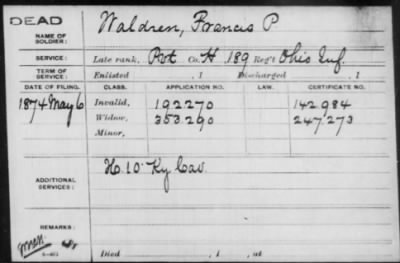 DEAD
NAME OF SOLDIER: Waldren, Francis P
SERVICE: Late rank, Pvt Co. H 189 Reg't Ohio Inf.
TERM OF SERVICE: Enlisted , 1 Discharged , 1
DATE OF FILING. CLASS. APPLICATION NO. LAW. CERTIFICATE NO.
1874 May 6 Invalid, 192270 142.984
Widow, 353.290 247,273
Minor,
ADDITIONAL SERVICES: H. 10 Ky Cav.
REMARKS:
Died , 1 , at